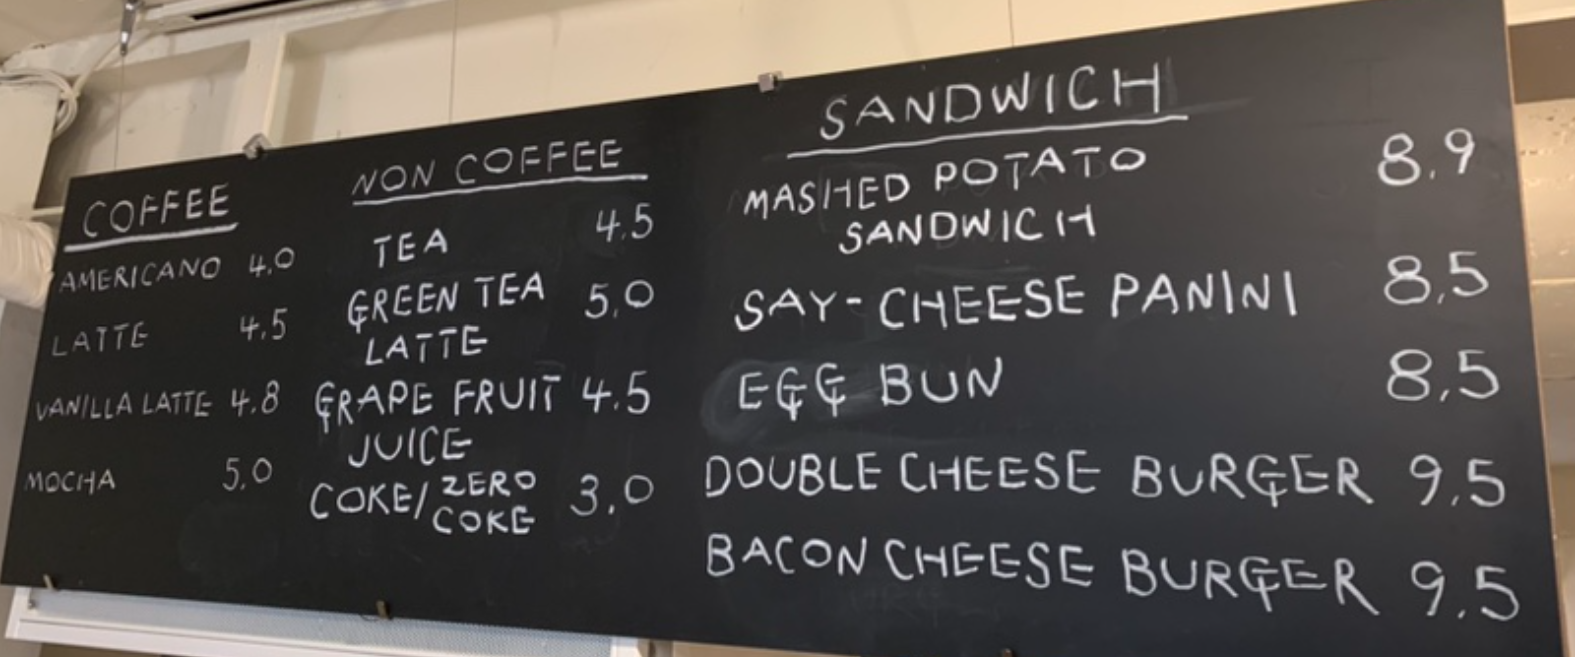 COFFEE
AMERICANO 4.0
LATTE 4.5
VANILLA LATTE 4.8
MOCHA 5.0
NON COFFEE
TEA 4.5
GREEN TEA 5.0
LATTE
GRAPE FRUIT 4.5
JUICE
COKE/ZERO COKE 3.0
SANDWICH
MASHED POTATO 8.9
SANDWICH
SAY-CHEESE PANINI 8.5
EGG BUN 8.5
DOUBLE CHEESE BURGER 9.5
BACON CHEESE BURGER 9.5